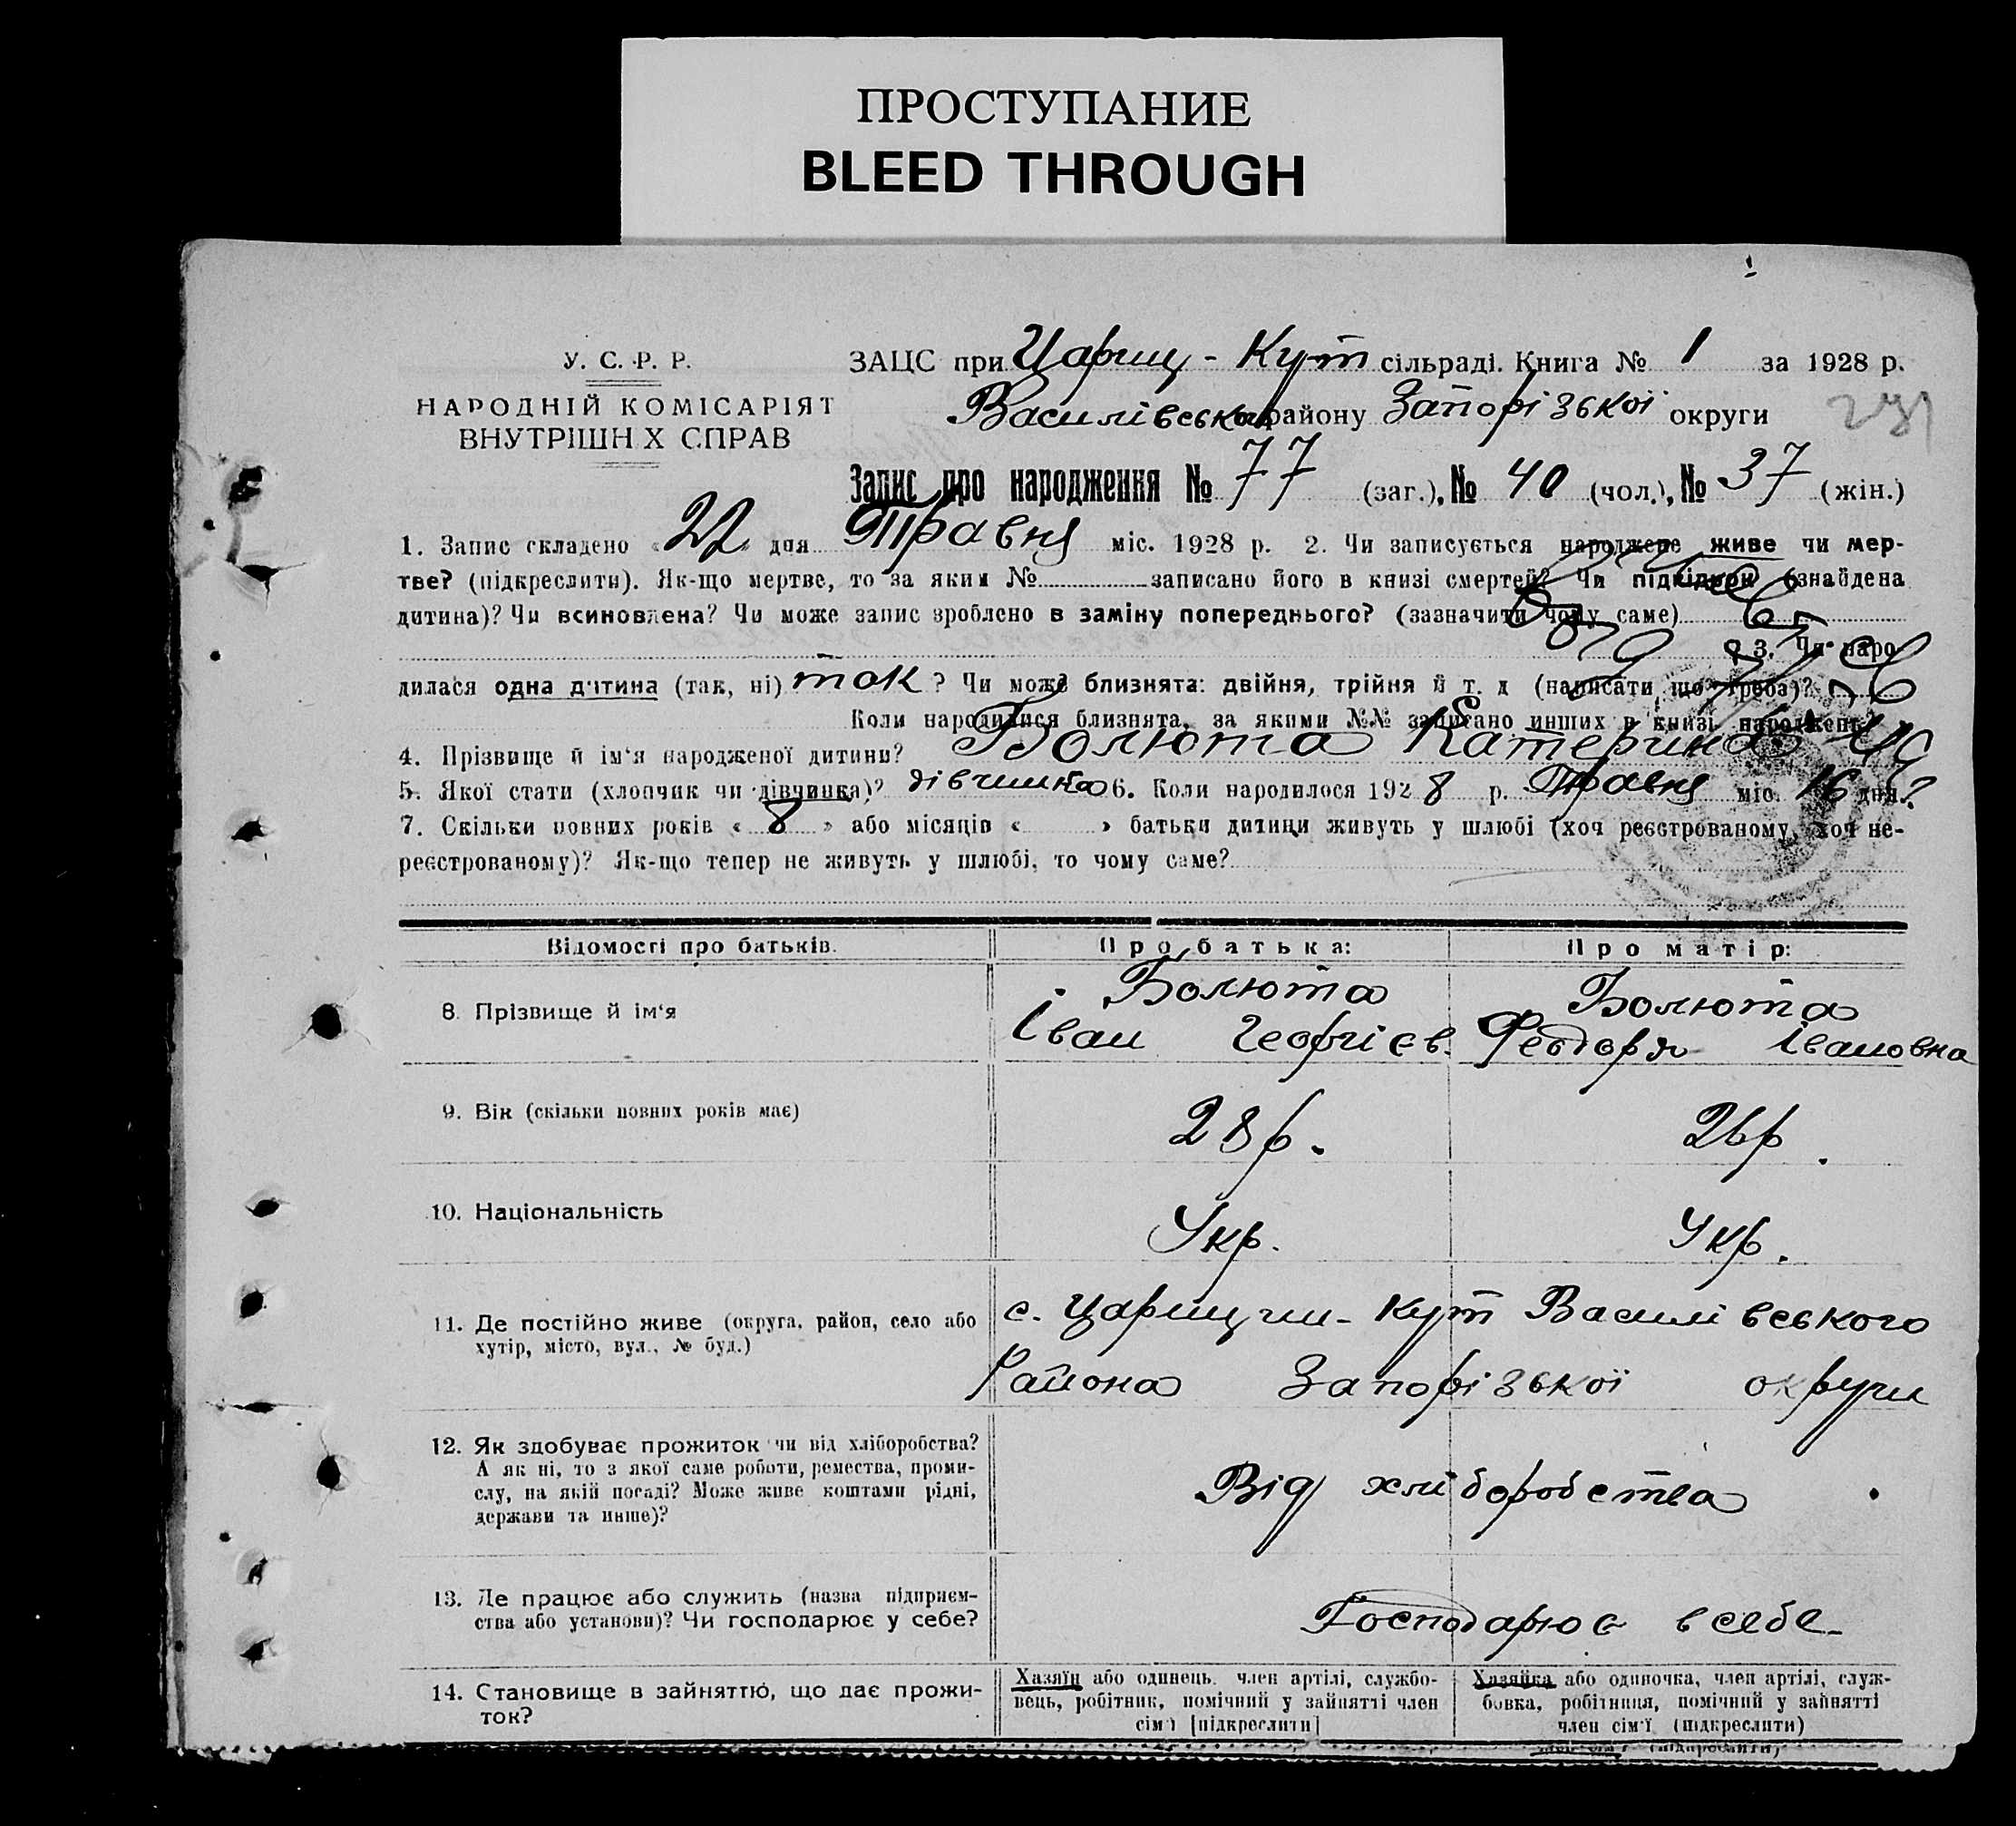 ПРОСТУПАНИЕ
BLEED THROUGH
У. С. Р. Р.
НАРОДНІЙ КОМІСАРІЯТ
ВНУТРІШН Х СПРАВ
ЗАЦС при Цариц - Кут сільраді. Книга № 1 за 1928 р.
Василівськ району Запорізької округи
Запис про народження № 77 (заг.), № 40 (чол.), № 37 (жін.)
1. Запис складено « 22 » дня Травня міс. 1928 р. 2. Чи записується народжене живе чи мер-
тве? (підкреслити). Як-що мертве, то за яким № записано його в книзі смертей? Чи підкідьок (знайдена
дитина)? Чи всиновлена? Чи може запис зроблено в заміну попереднього? (зазначити чому саме)
3. Чи наро-
дилася одна дитина (так, ні) так ? Чи може близнята: двійня, трійня й т. д (написати що треба)?
Коли народилися близнята, за якими №№ записано инших в книзі народжень?
4. Прізвище й ім‘я народженої дитини? Болюта Катерина
5. Якої стати (хлопчик чи дівчинка)? дівчинка 6. Коли народилося 1928 р. Травня міс. 16 дня?
7. Скільки повних років « 8 » або місяців « » батьки дитини живуть у шлюбі (хоч реєстрованому, хоч не-
реєстрованому)? Як-що тепер не живуть у шлюбі, то чому саме?
Відомості про батьків. Про батька: Про матір:
8. Прізвище й ім‘я Болюта Болюта
Іван Георгієв. Феодора Івановна
9. Вік (скільки повних років має) 28 р. 26 р.
10. Національність Укр. Укр.
11. Де постійно живе (округа, район, село або
хутір, місто, вул., № буд.)
с. Царицин - Кут Василівського
Района Запорізької округи
12. Як здобуває прожиток чи від хліборобства?
А як ні, то з якої саме роботи, ремества, проми-
слу, на якій посаді? Може живе коштами рідні,
держави та инше)?
Від хліборобства
13. Де працює або служить (назва підприєм-
ства або установи)? Чи господарює у себе?
Господарює в себе
14. Становище в зайняттю, що дає прожи-
ток?
Хазяїн або одинець, член артілі, службо-
вець, робітник, помічний у зайнятті член
сім‘ї [підкреслити]
Хазяйка або одиночка, член артілі, служ-
бовка, робітниця, помічний у зайнятті
член сім‘ї (підкреслити)